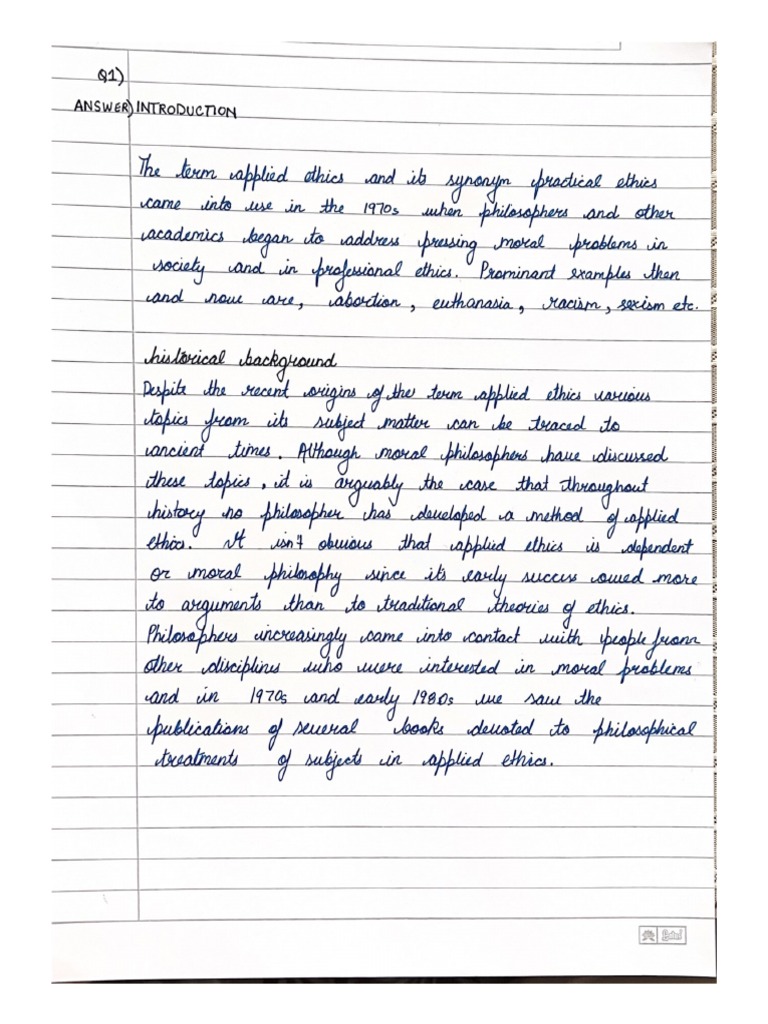 Q1)
ANSWER) INTRODUCTION
The term applied ethics and its synonym practical ethics
came into use in the 1970s when philosophers and other
academics began to address pressing moral problems in
society and in professional ethics. Prominant examples then
and now are, abortion, euthanasia, racism, sexism etc.
historical background
Despite the recent origins of the term applied ethics various
topics from its subject matter can be traced to
ancient times. Although moral philosophers have discussed
these topics, it is arguably the case that throughout
history no philosopher has developed a method of applied
ethics. It isn't obvious that applied ethics is dependent
or moral philosophy since it's early success owed more
to arguments than to traditional theories of ethics.
Philosophers increasingly came into contact with people from
other disciplines who were interested in moral problems
and in 1970s and early 1980s we saw the
publications of several books devoted to philosophical
treatments of subjects in applied ethics.